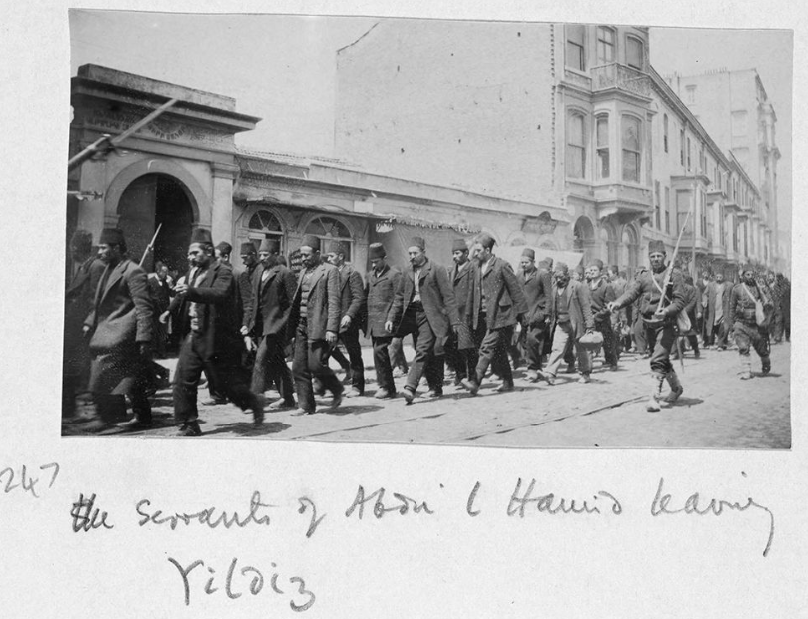 247
the Servants of Abdu l Hamid leaving
Yildiz